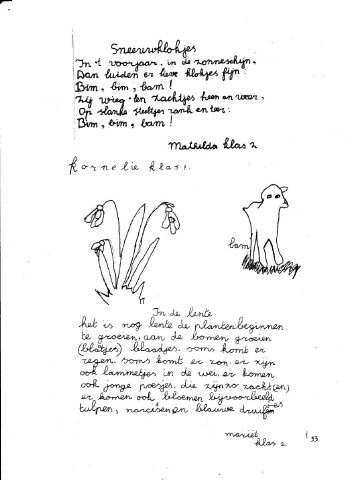 Sneeuwklokjes
In 't voorjaar, in de zonneschijn,
Dan luiden er lieve klokjes fijn:
Bim, bim, bam!
Zij wieg-len zachtjes heen en weer,
Op slanke steeltjes rank en teer:
Bim, bim, bam!
Mathilda klas 2
kornelie klas 1.
lam
In de lente
het is nog lente de planten beginnen
te groeien. aan de bomen groeien
(blatjes) blaadjes. soms komt er
regen. soms komt er zon. er zijn
ook lammetjes in de wei. er komen
ook jonge poesjes. die zijn zo zacht(en)
er komen ook bloemen bijvoorbeeld
tulpen, narcissen en blauwe druifjes
mariët
klas 2
33